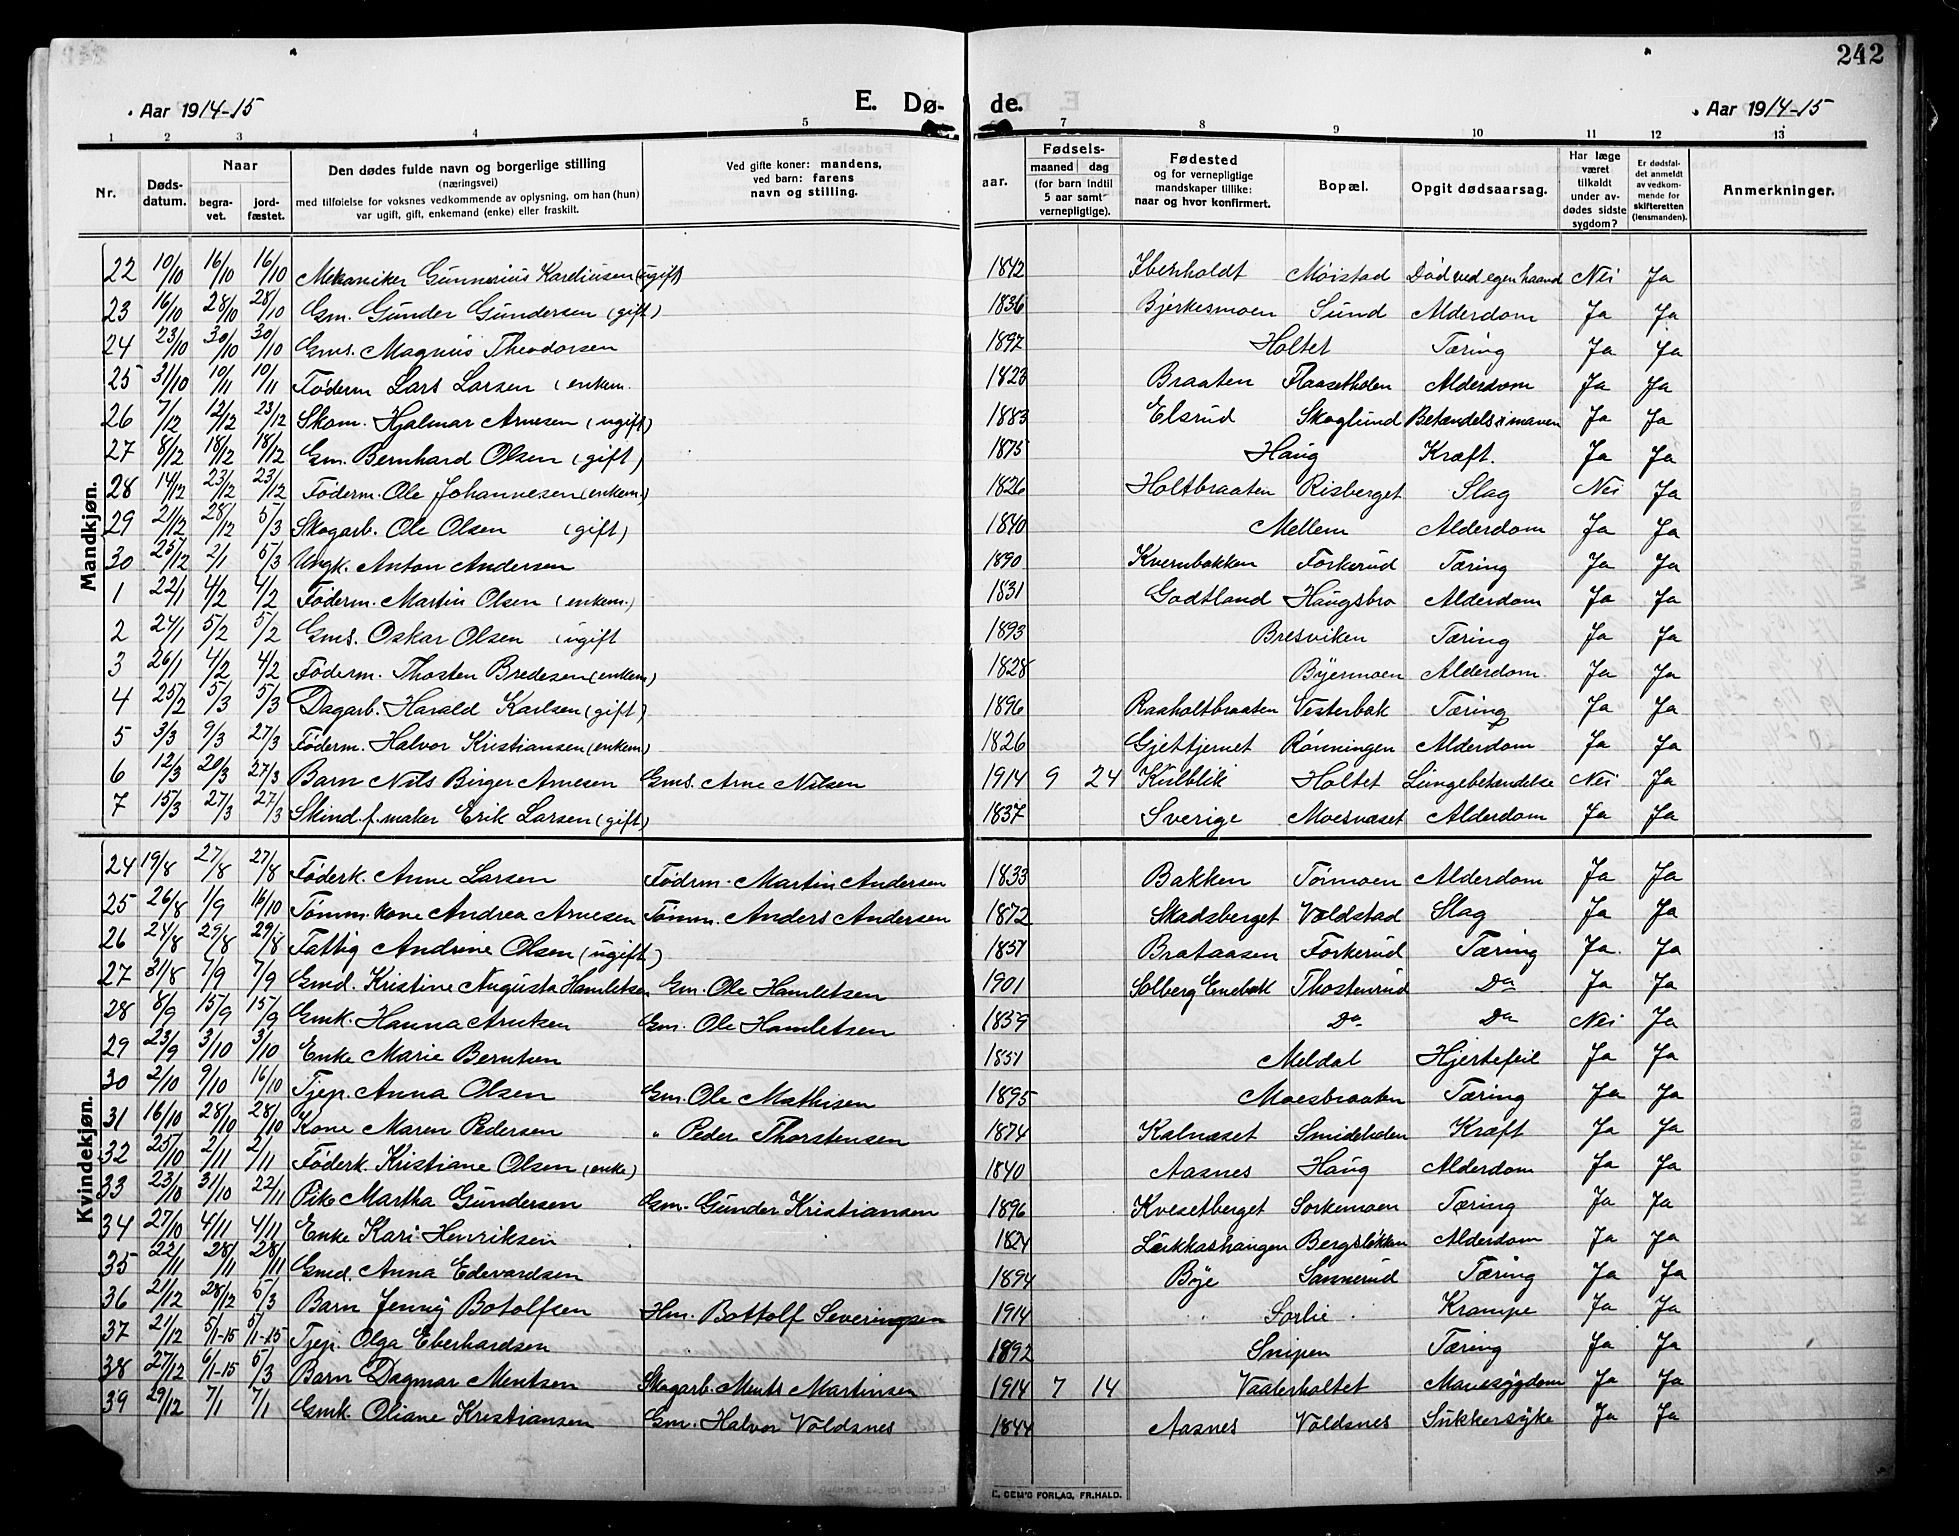 242
Aar 1914-15 E. Dø- de. Aar 1914-15
1 2 3 4 5 7 8 9 10 11 12 13
Nr. Døds-datum. Naar begra-vet. jord-fæstet. Den dødes fulde navn og borgerlige stilling (næringsvei) med tilføielse for voksnes vedkommende av oplysning, om han (hun) var ugift, gift, enkemand (enke) eller fraskilt. Ved gifte koner: mandens, ved barn: farens navn og stilling. aar. Fødsels- maaned dag (for barn indtil 5 aar samt vernepligtige). Fødested og for vernepligtige mandskaper tillike: naar og hvor konfirmert. Bopæl. Opgit dødsaarsag. Har læge været tilkaldt under av-dødes sidste sygdom? Er dødsfal-det anmeldt av vedkom-mende for skifteretten (lensmanden). Anmerkninger.
Mandkjøn.
22 10/10 16/10 16/10 Mekaniker Gunnerius Kareliusen (ugift) 1842 Ibenholdt Moistad Død ved egen haand Nei Ja
23 16/10 28/10 28/10 Gm. Gunder Gundersen (gift) 1836 Bjerkesmoen Sund Alderdom Ja Ja
24 23/10 30/10 30/10 Gms. Magnus Theodorsen 1897 Holtet Tæring Ja Ja
25 31/10 10/11 10/11 Føderm Lars Larsen (enkem. 1823 Braaten Flaasetholen Alderdom Ja Ja
26 7/12 12/12 23/12 Skom. Hjalmar Arnesen (ugift) 1883 Elsrud Skoglund Betændels. i maven Ja Ja
27 8/12 18/12 18/12 Gm. Bernhard Olsen (gift) 1875 Haug Kræft. Ja Ja
28 14/12 23/12 23/12 Føderm. Ole Johannesen (enkem.) 1826 Holtbraaten Risberget Slag Nei Ja
29 21/12 28/12 5/3 Skogarb. Ole Olsen (gift) 1840 Mellem Alderdom Ja Ja
30 25/12 2/1 5/3 Ungk. Anton Andersen 1890 Kvernbakken Forkerud Tæring Ja Ja
1 22/1 4/2 4/2 Føderm. Martin Olsen (enkem.) 1831 Godtland Haugsbro Alderdom Ja Ja
2 24/1 5/2 5/2 Gms. Oskar Olsen (ugift 1893 Bresviken Tæring Ja Ja
3 26/1 4/2 4/2 Føderm. Thosten Bredesen (enkem) 1828 Byermoen Alderdom. Ja Ja
4 25/2 5/3 5/3 Dagarb. Harald Karlsen (gift) 1896 Raaholtbraaten Vesterbak Tæring Ja Ja
5 3/3 9/3 27/3 Føderm. Halvor Kristiansen (enkem) 1826 Gjettjernet Rønningen Alderdom Ja Ja
6 12/3 20/3 27/3 Barn Nils Birger Arnesen Gms. Arne Nilsen 1914 9 24 Kulblik Holtet Lungebetændelse Nei Ja
7 15/3 27/3 27/3 Skind.f.maker Erik Larsen (gift) 1837 Sverige Moesvaset Alderdom Ja Ja
Kvindekjøn.
24 19/8 27/8 27/8 Føderk. Anne Larsen Fødrm. Martin Andersen 1833 Bakken Tørmoen Alderdom Ja Ja
25 26/8 1/9 16/10 Tømm.kone Andrea Arnesen Tømm. Anders Andersen 1872 Skadsberget Voldstad Slag Ja Ja
26 24/8 29/8 29/8 Fattig Andrine Olsen (ugift) 1857 Brataasen Forkerud Tæring Ja. Ja
27 31/8 7/9 7/9 Gmd. Kristine Augusta Hamletsen Gm. Ole Hamletsen 1901 Solberg Enebak Thostenrud Do Ja Ja
28 8/9 15/9 15/9 Gmk. Hanna Arntsen Gm. Ole Hamletsen 1839 Do Do Nei Ja
29 23/9 3/10 3/10 Enke Marie Berntsen 1851 Meldal Hjertefeil Ja Ja
30 2/10 9/10 16/10 Tjep. Anna Olsen Gm. Ole Mathisen 1895 Moesbraaten Tæring Ja Ja
31 16/10 28/10 28/10 Kone Maren Pedersen " Peder Thorstensen 1874 Kalnæset Smidsholen Kræft Ja Ja
32 25/10 2/11 2/11 Føderk. Kristiane Olsen (enke) 1840 Aasnes Haug Alderdom Ja Ja
33 23/10 31/10 22/11 Pike Martha Gundersen Gm. Gunder Kristiansen 1896 Kvesetberget Sorkemoen Tæring Ja Ja
34 27/10 4/11 4/11 Enke Kari Henriksen 1824 Lerkkashaugen Bergsløkken Alderdom Ja Ja
35 22/11 28/11 28/11 Gmd. Anna Edevardsen 1894 Bye Sannerud Tæring Ja Ja
36 21/12 28/12 5/3 Barn Jenny Botolfsen Hm. Bottolf Severinsen 1914 Sorlie Krampe Ja Ja
37 21/12 5/1-15 5/1-15 Tjep. Olga Eberhardsen 1892 Snipen Tæring Ja Ja
38 27/12 6/1-15 5/3 Barn Dagmar Mentsen Skogarb. Ments Martinsen 1914 7 14 Vaalerholtet Mavesygdom Ja Ja
39 29/12 7/1 7/1 Gmk. Oliane Kristiansen Gm. Halvor Voldsnes 1844 Aasnes Voldsnes Sukkersyke Ja Ja
E. SEM'S FORLAG, FR.HALD.